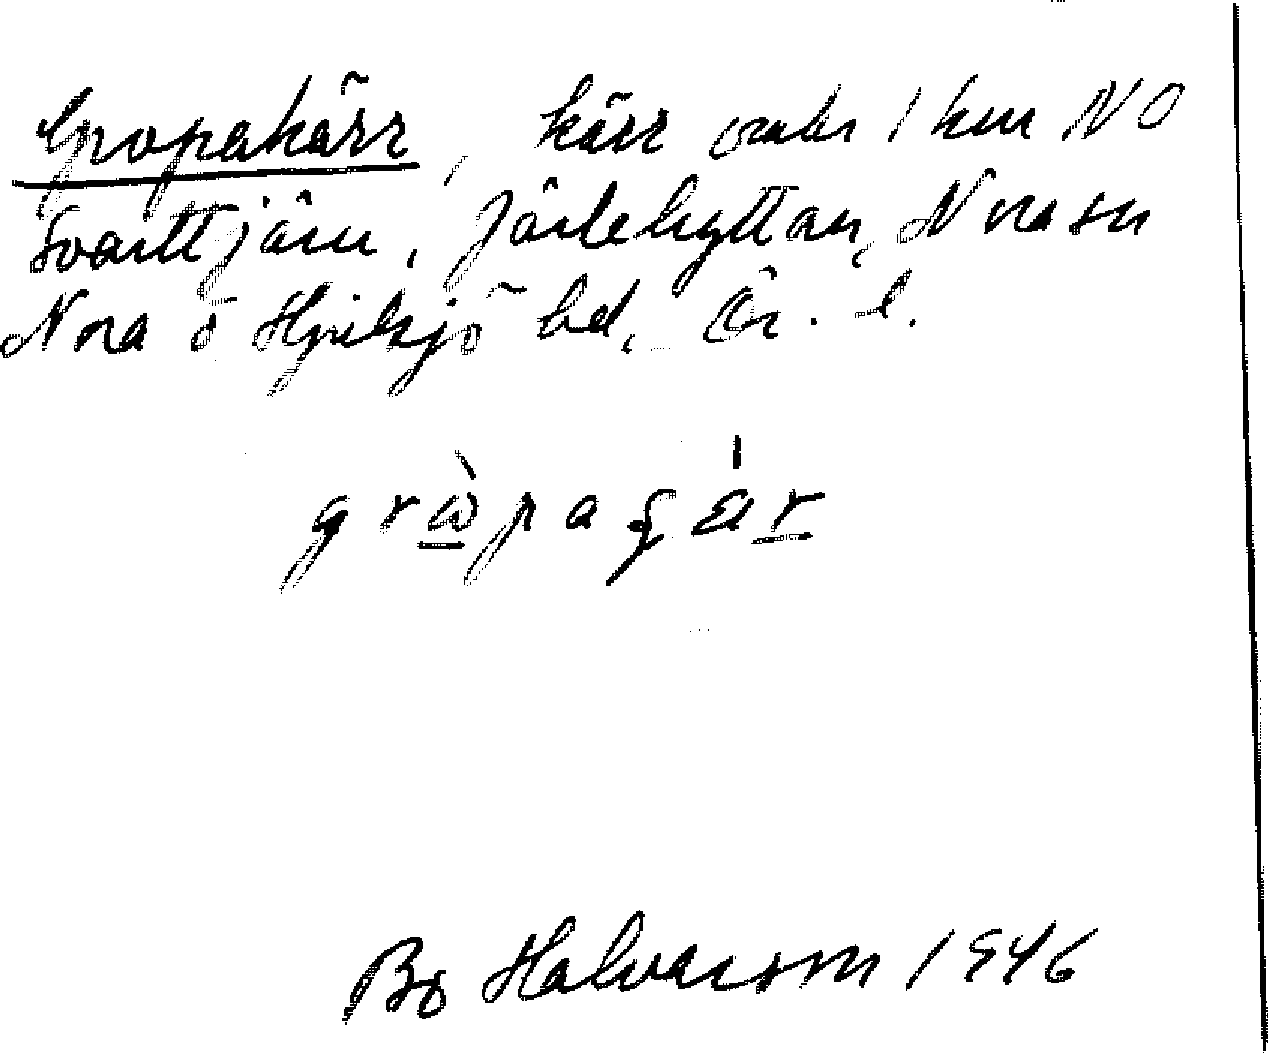 Gropakärr, kärr omkr 1 km NO
Svarttjärn, Järlehyttan, Nora sn
Nora o Hjulsjö hd, Ör. l.
grὼpagár
Bo Halvarson 1946